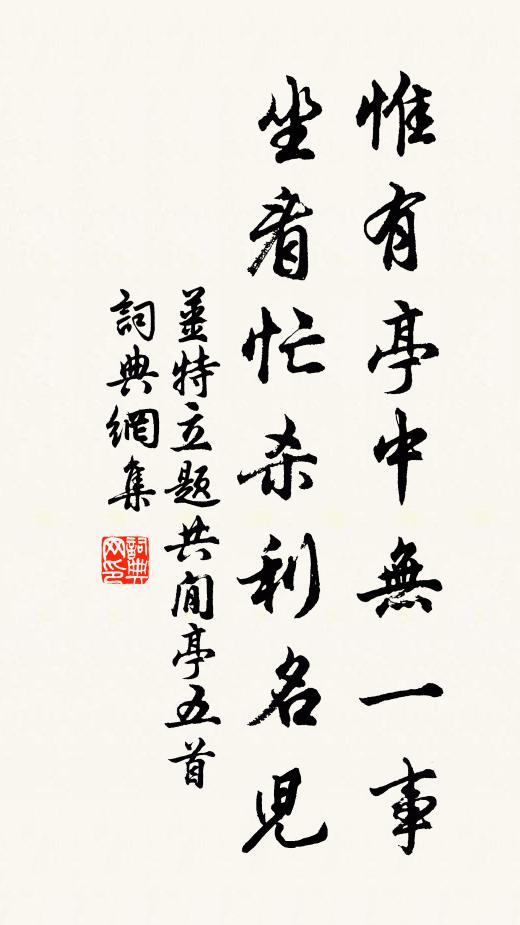 惟有亭中無一事
坐看忙杀利名児
薑特立題共閒亭五首
詞典網集
詞典网印